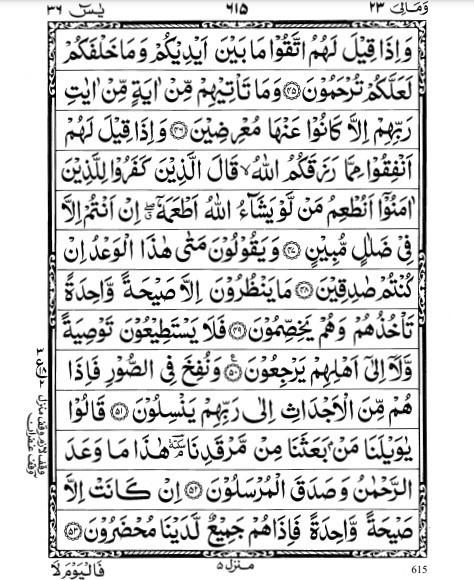 وَمَالِیَ ۲۳ ٦١٥ یٰسٓ ۳٦
وَاِذَا قِیْلَ لَهُمُ اتَّقُوْا مَا بَیْنَ اَیْدِیْكُمْ وَمَا خَلْفَكُمْ
لَعَلَّكُمْ تُرْحَمُوْنَ ﴿۴۵﴾ وَمَا تَاْتِیْهِمْ مِّنْ اٰیَةٍ مِّنْ اٰیٰتِ
رَبِّهِمْ اِلَّا كَانُوْا عَنْهَا مُعْرِضِیْنَ ﴿۴۶﴾ وَاِذَا قِیْلَ لَهُمْ
اَنْفِقُوْا مِمَّا رَزَقَكُمُ اللّٰهُ ۙ قَالَ الَّذِیْنَ كَفَرُوْا لِلَّذِیْنَ
اٰمَنُوْۤا اَنُطْعِمُ مَنْ لَّوْ یَشَآءُ اللّٰهُ اَطْعَمَهٗۤ ۖۗ اِنْ اَنْتُمْ اِلَّا
فِیْ ضَلٰلٍ مُّبِیْنٍ ﴿۴۷﴾ وَیَقُوْلُوْنَ مَتٰی هٰذَا الْوَعْدُ اِنْ
كُنْتُمْ صٰدِقِیْنَ ﴿۴۸﴾ مَا یَنْظُرُوْنَ اِلَّا صَیْحَةً وَّاحِدَةً
تَاْخُذُهُمْ وَهُمْ یَخِصِّمُوْنَ ﴿۴۹﴾ فَلَا یَسْتَطِیْعُوْنَ تَوْصِیَةً
وَّلَاۤ اِلٰۤی اَهْلِهِمْ یَرْجِعُوْنَ ﴿۵۰﴾ وَنُفِخَ فِی الصُّوْرِ فَاِذَا
هُمْ مِّنَ الْاَجْدَاثِ اِلٰی رَبِّهِمْ یَنْسِلُوْنَ ﴿۵۱﴾ قَالُوْا
یٰوَیْلَنَا مَنْۢ بَعَثَنَا مِنْ مَّرْقَدِنَا ۘ هٰذَا مَا وَعَدَ
الرَّحْمٰنُ وَصَدَقَ الْمُرْسَلُوْنَ ﴿۵۲﴾ اِنْ كَانَتْ اِلَّا
صَیْحَةً وَّاحِدَةً فَاِذَا هُمْ جَمِیْعٌ لَّدَیْنَا مُحْضَرُوْنَ ﴿۵۳﴾
وقف لازم وقف منزل
وقف غفران
فَالْیَوْمَ لَا منزل ۵ 615